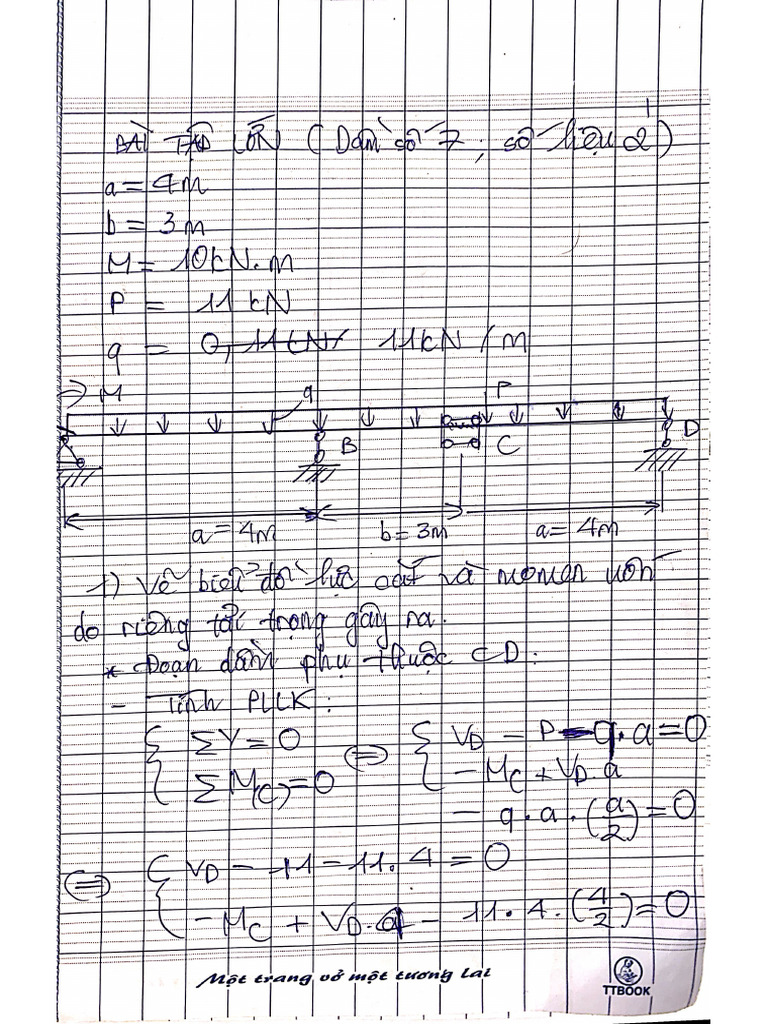 BÀI TẬP LỚN (Dầm số 7, số liệu 2)
a = 4m
b = 3m
M = 10kN.m
P = 11 kN
q = 0,11kN/ 11kN/m
M q P
B C D
a = 4m b = 3m a = 4m
1) Vẽ biểu đồ lực cắt và momen uốn
do riêng tải trọng gây ra.
* Đoạn dầm phụ thuộc CD:
- Tính PLLK:
{ ΣY = 0 ⇔ { V_D - P - q.a = 0
{ ΣM(C) = 0 { -M_C + V_D.a
- q.a.(a/2) = 0
⇔ { V_D - 11 - 11.4 = 0
{ -M_C + V_D.a - 11.4.(4/2) = 0
Một trang vở một tương lai
TTBOOK